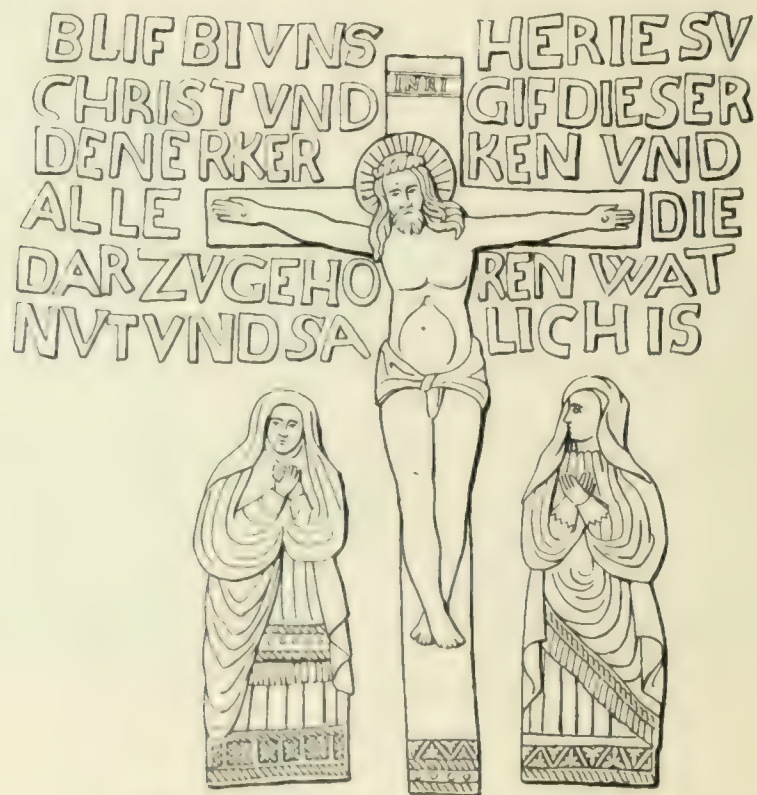 BLIF BI VNS HERIE SV
INRI
CHRIST VND GIF DIE SER
DENERKER KEN VND
ALLE DIE
DAR ZVGEHO REN WAT
NVT VND SA LICH IS